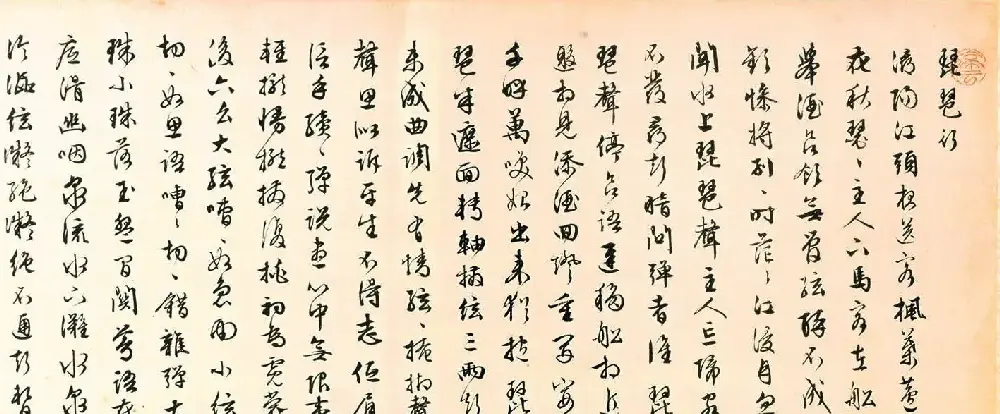 琵琶行
潯陽江頭夜送客楓葉荻
花秋瑟〻主人下馬客在船
舉酒欲飲無管絃醉不成
歡慘將別〻時茫〻江浸月忽
聞水上琵琶聲主人忘歸客
不發尋聲暗問彈者誰琵
琶聲停欲語遲移船相近
邀相見添酒回燈重開宴
千呼萬喚始出來猶抱琵
琶半遮面轉軸撥絃三兩聲
未成曲調先有情絃〻掩抑聲
聲思似訴平生不得志低眉
信手續〻彈說盡心中無限事
輕攏慢撚抹復挑初為霓裳
後六幺大絃嘈〻如急雨小絃
切〻如私語嘈〻切〻錯雜彈大
珠小珠落玉盤間關鶯語花
底滑幽咽泉流水下灘水泉
冷澀絃凝絕凝絕不通聲暫